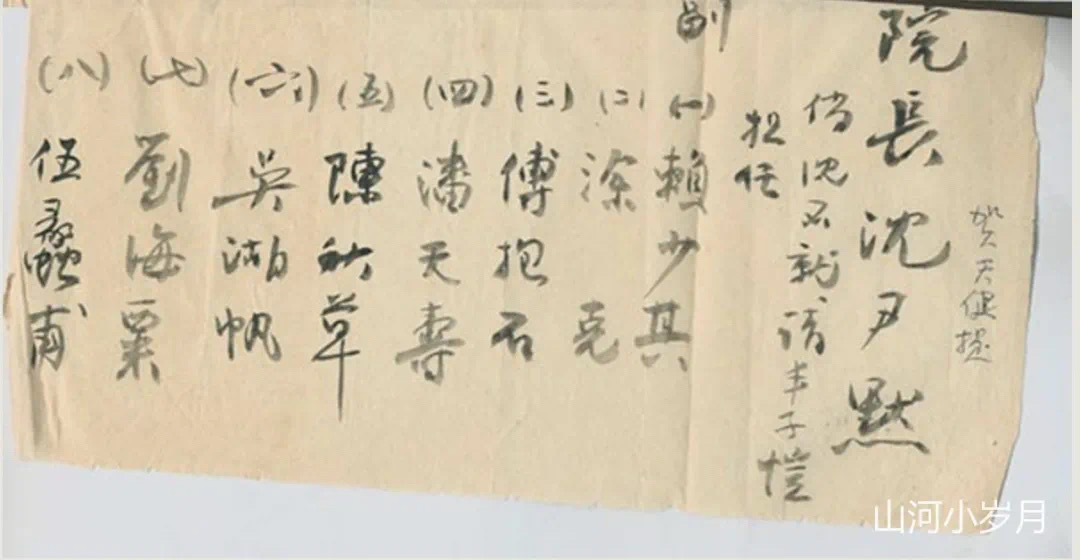 賀天健擬
院長沈尹默
倘沈不就、請丰子愷
担任
副
(一)賴少其
(二)涂克
(三)傅抱石
(四)潘天壽
(五)陳秋草
(六)吳湖帆
(七)劉海粟
(八)伍蠡甫
山河小岁月